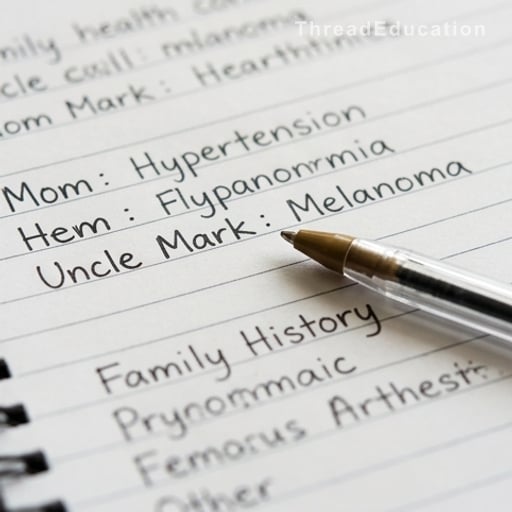 ThreadEducation
mily health
cle call: mlanoma
om Mark: Hearthtin
Mom: Hypertension
Hem: Flypanonrmia
Uncle Mark: Melanoma
Family History
Prynommaic
Femorus Arthest
Other